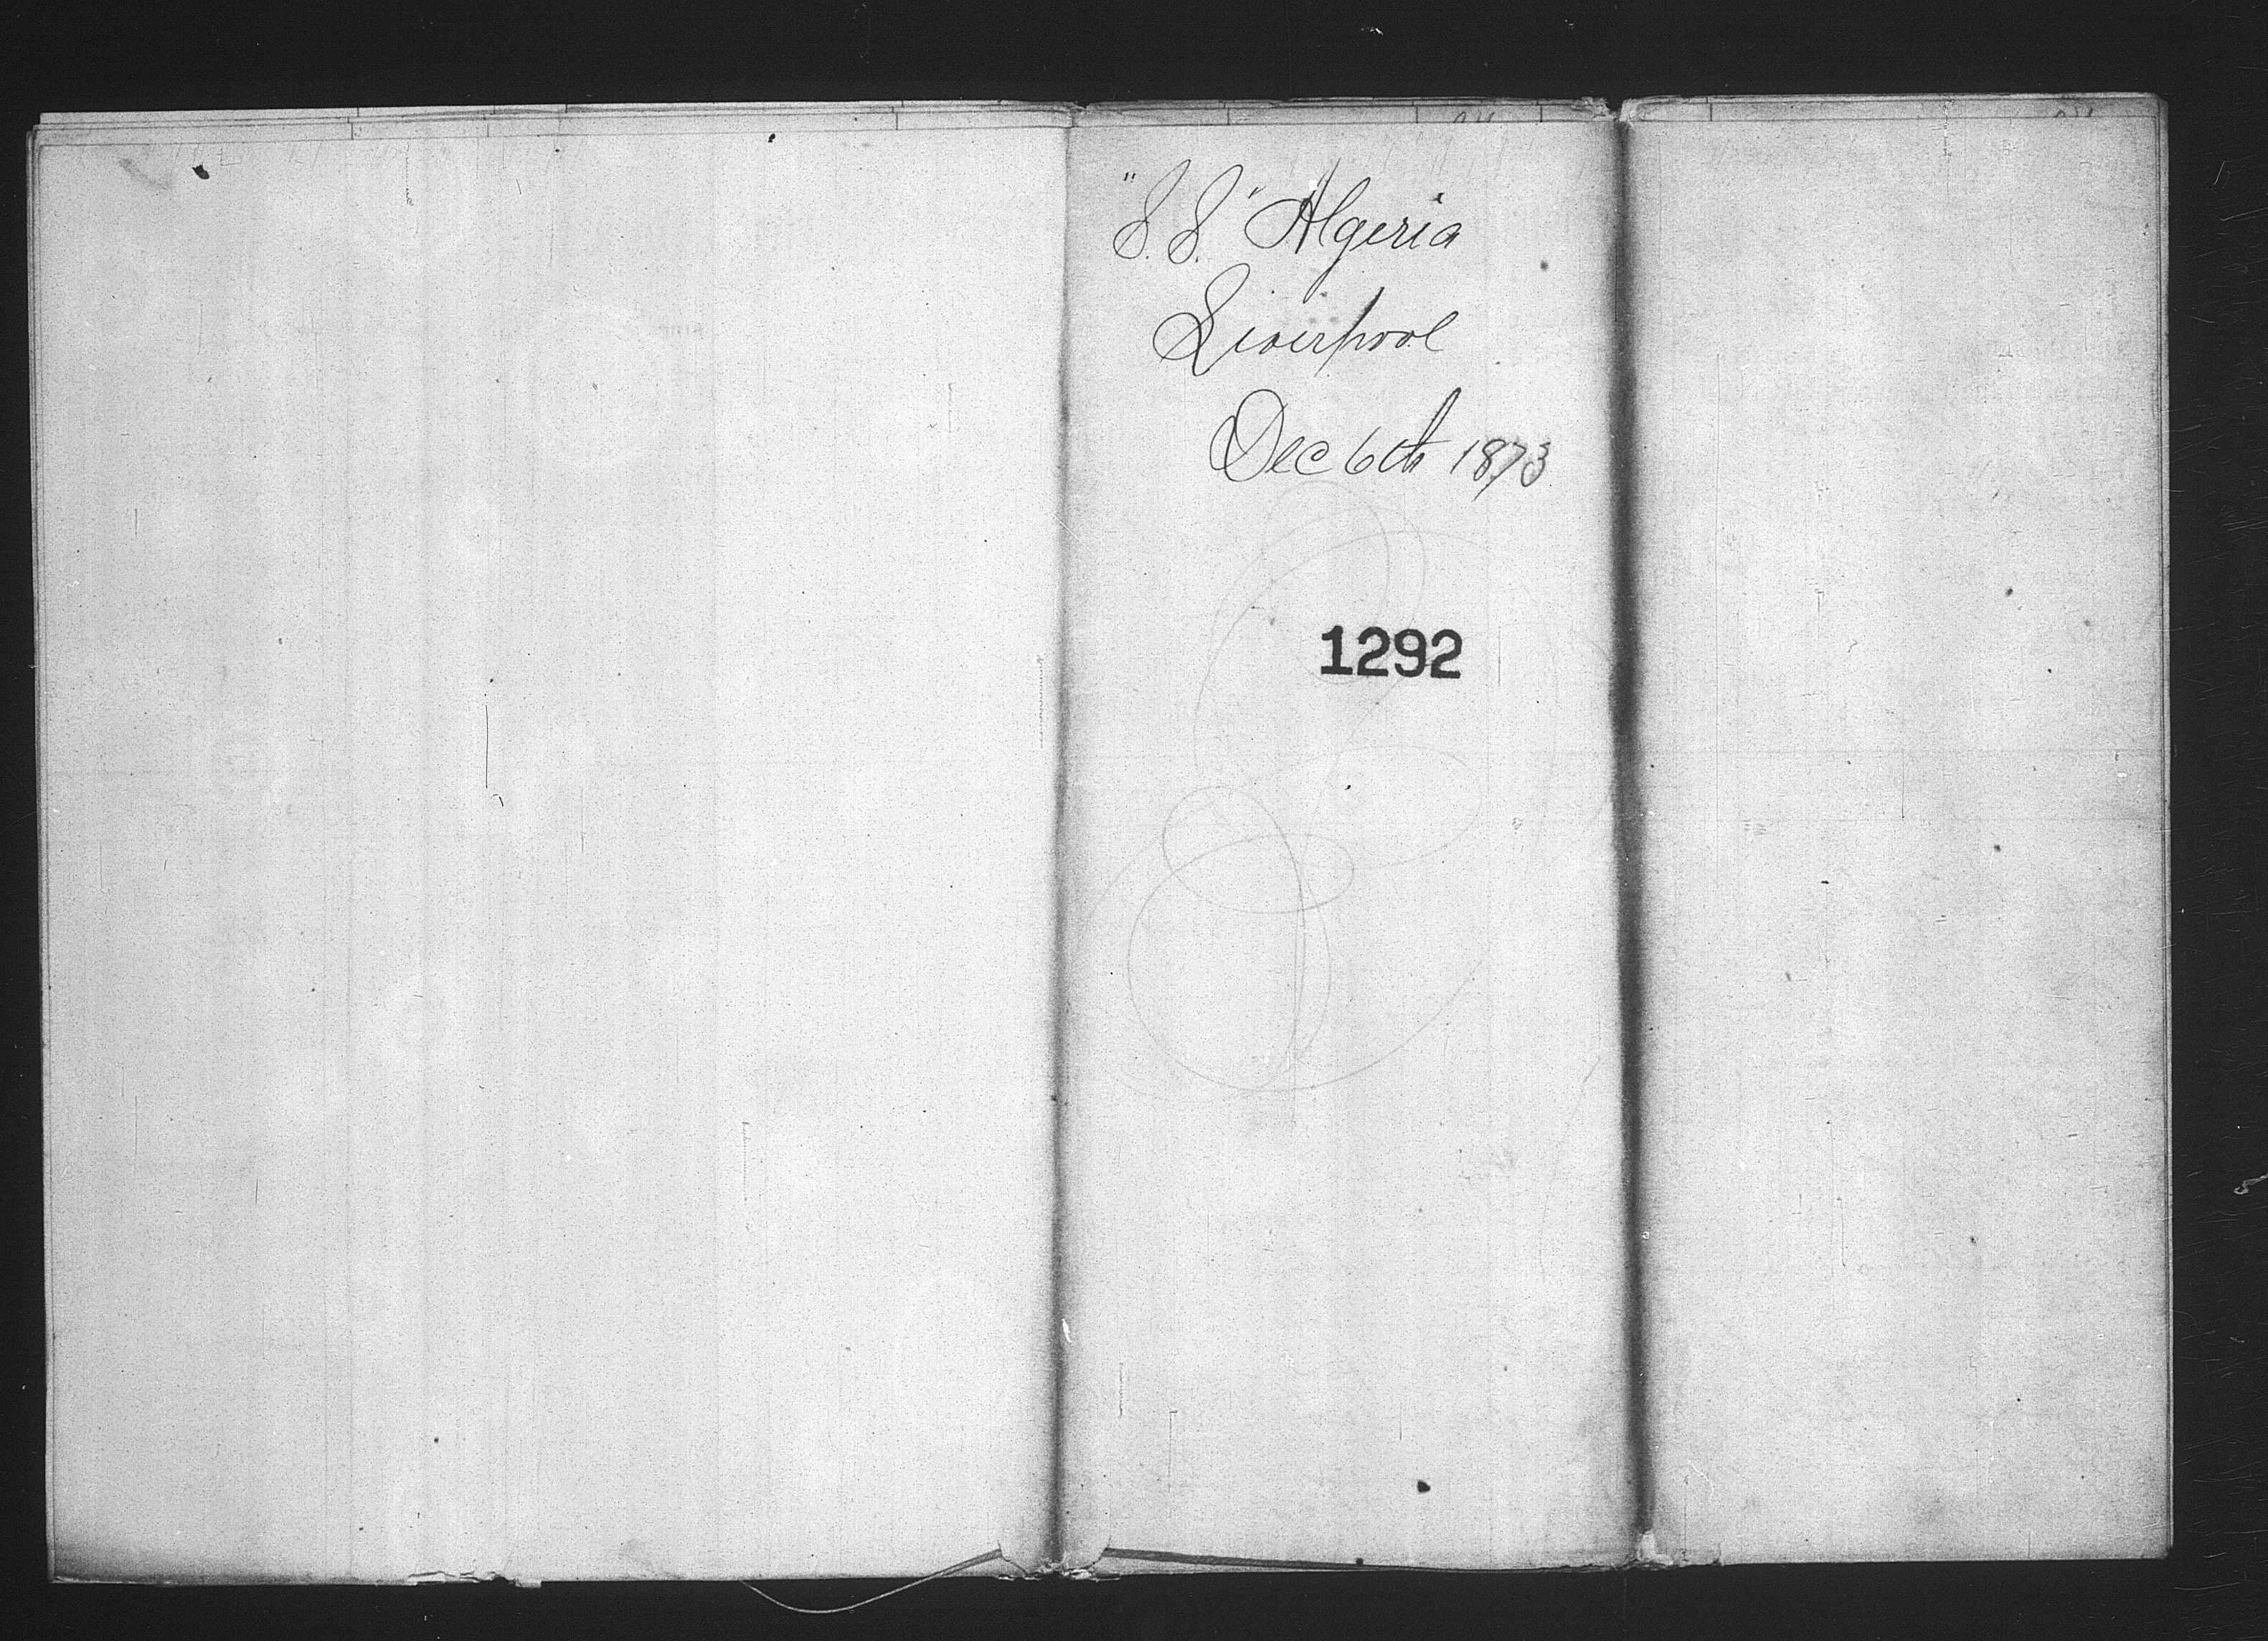 "S.S." Algeria
Liverpool
Dec 6th 1873
1292